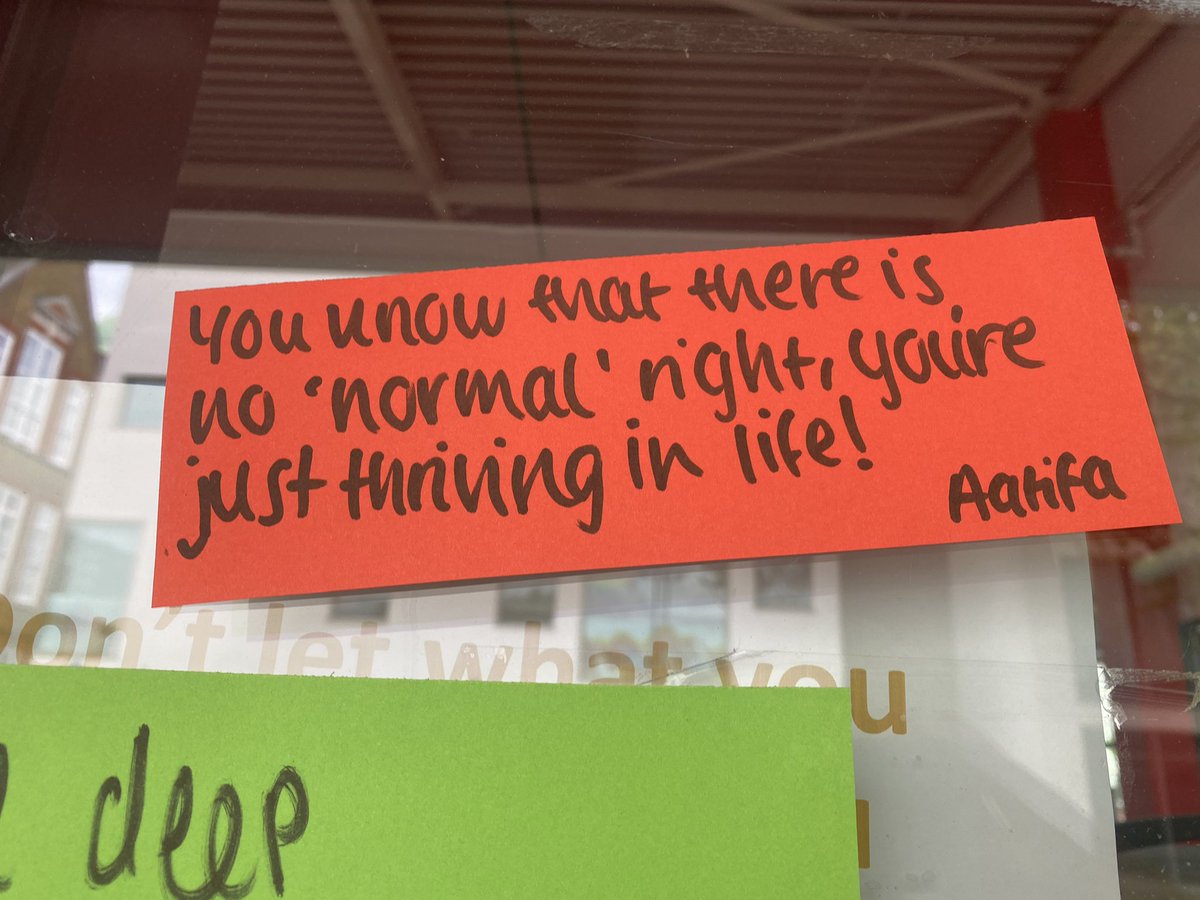 You know that there is
no 'normal' right, you're
just thriving in life!
Aatifa
Don't let what you
deep